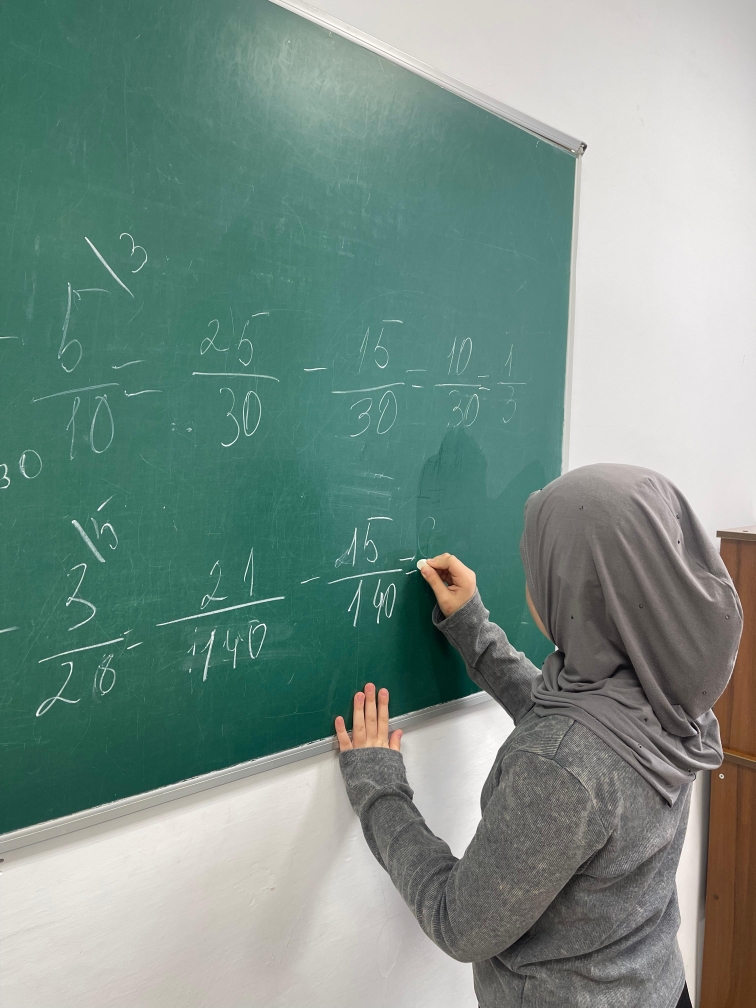 - 5\3/10 = 25/30 - 15/30 = 10/30 = 1/3
30
- 3\5/28 = 21/140 - 15/140 =